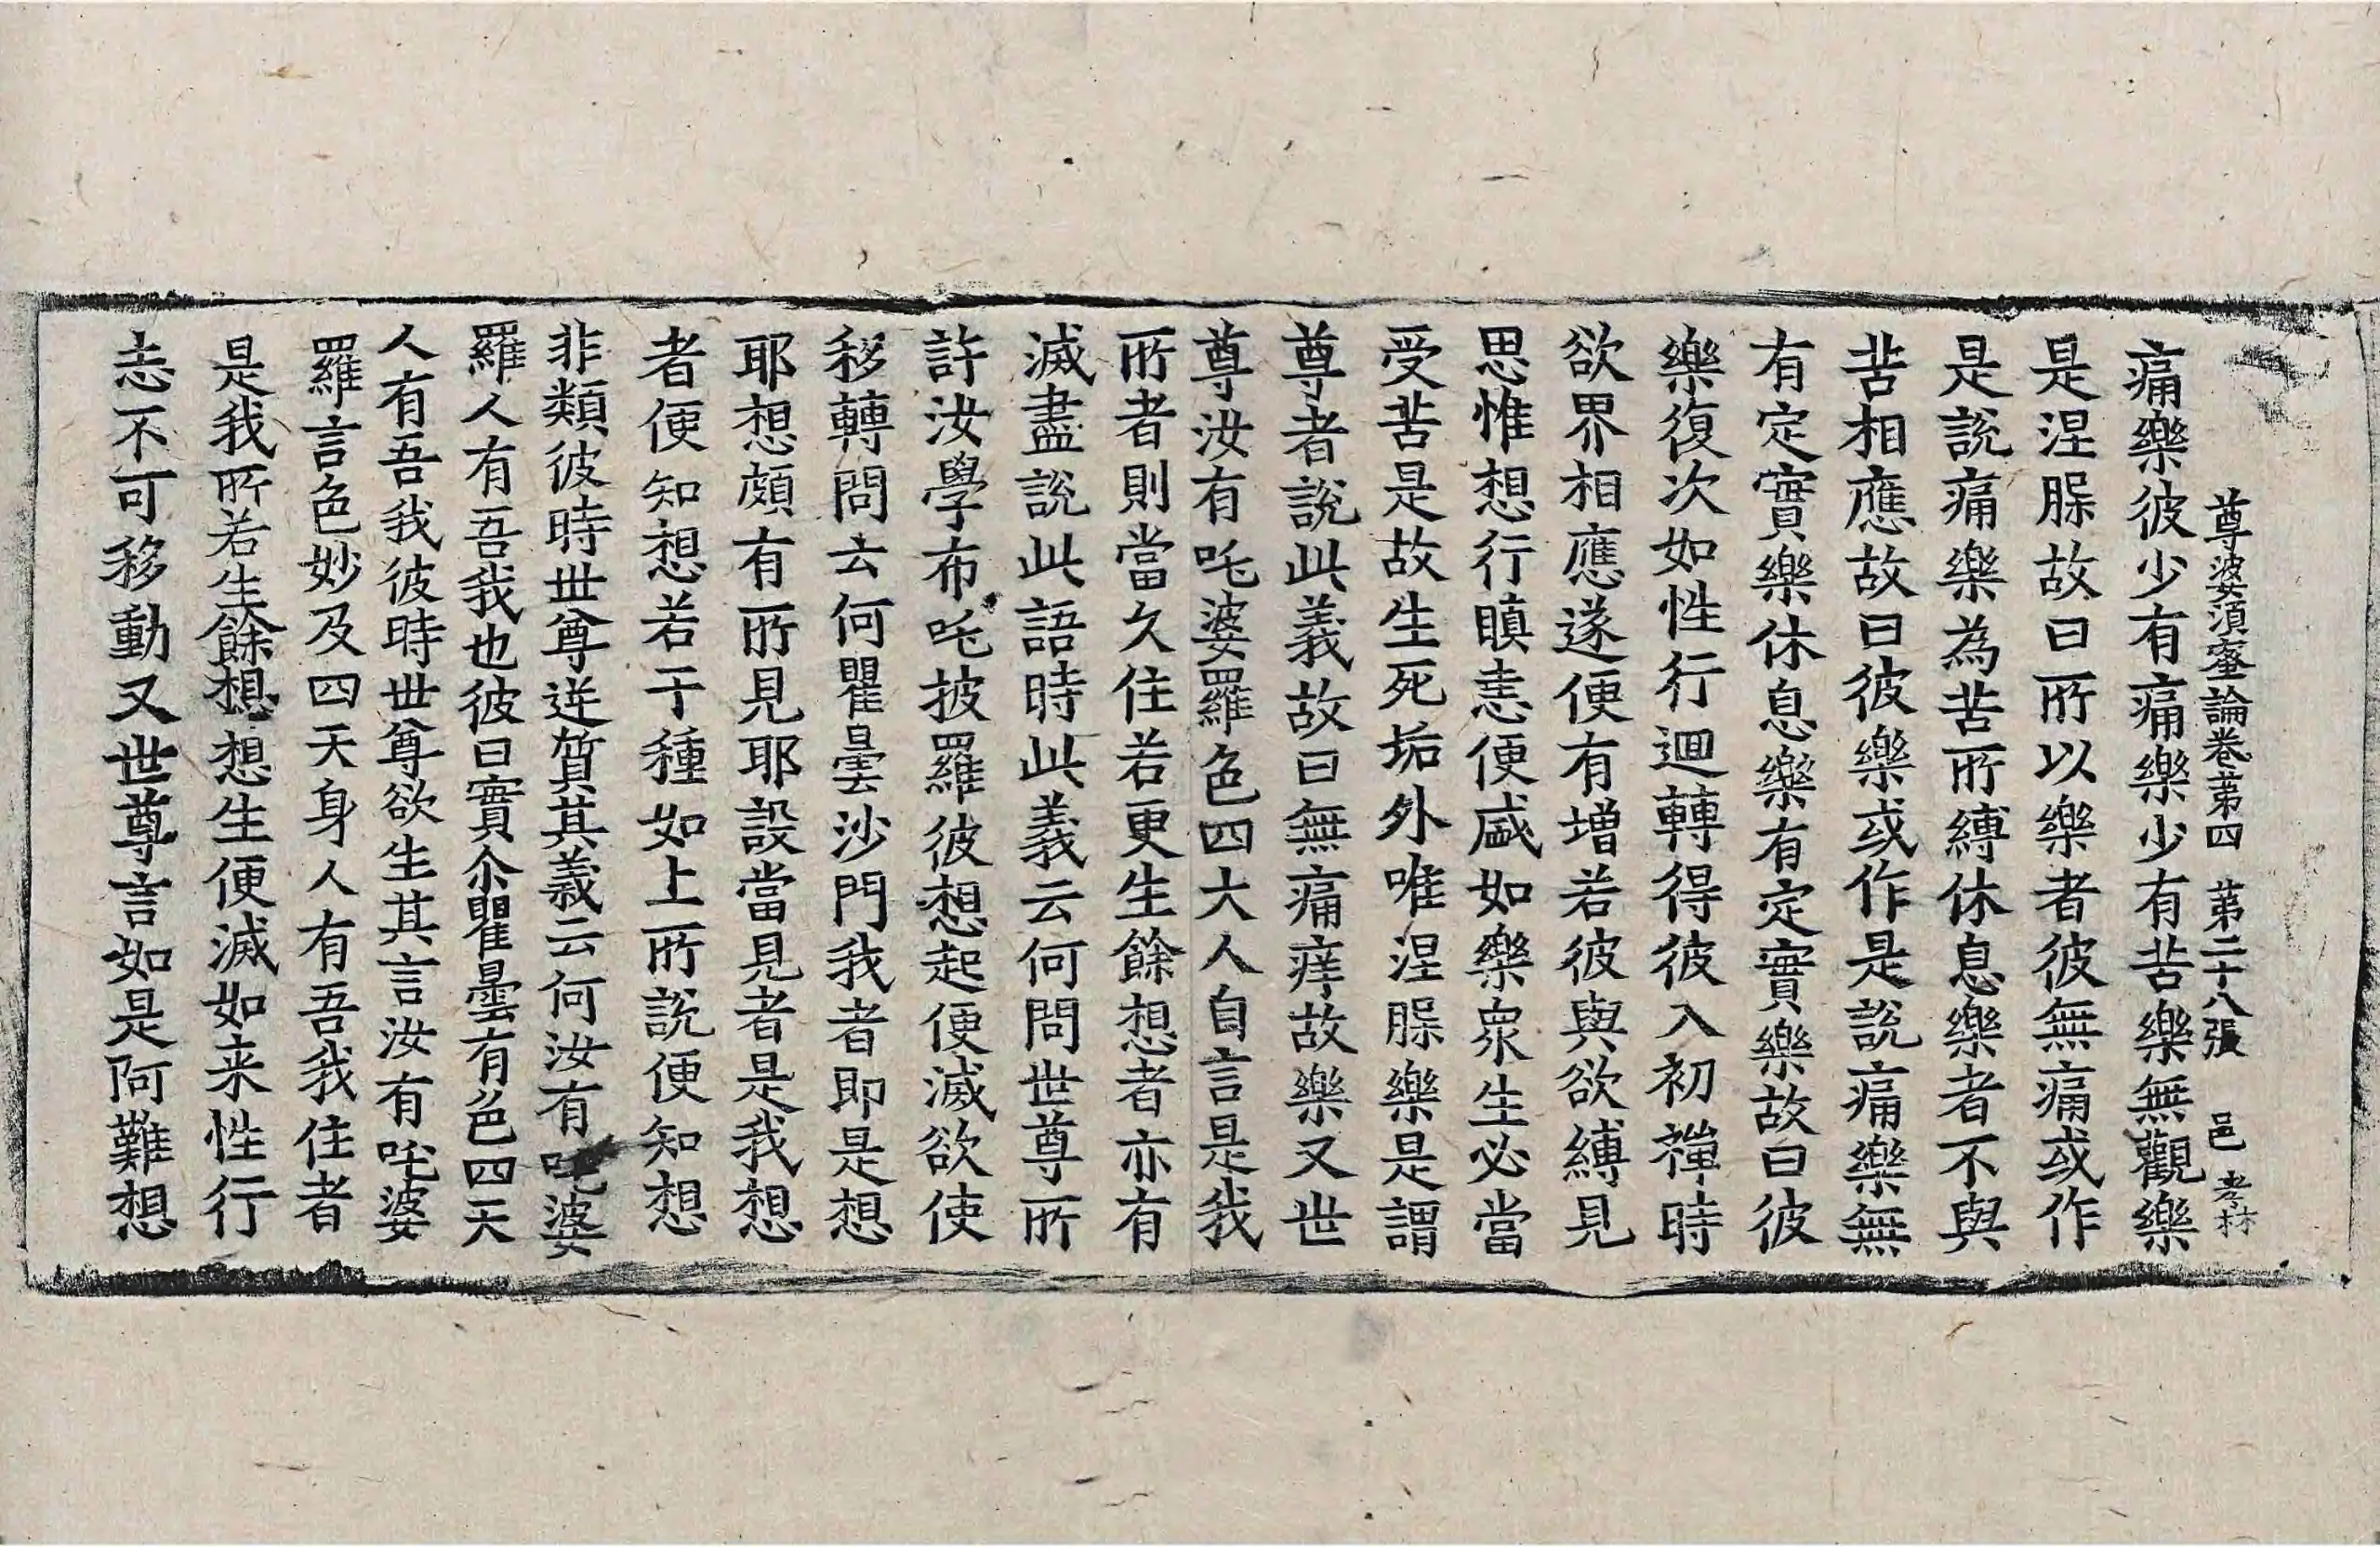 尊婆須蜜論卷苐四 苐二十八張 邑 孝林
痛樂彼少有痛樂少有苦樂無觀樂
是涅槃故曰所以樂者彼無痛或作
是說痛樂為苦所縛休息樂者不與
苦相應故曰彼樂或作是說痛樂無
有定實樂休息樂有定實樂故曰彼
樂復次如性行迴轉得彼入初禪時
欲界相應遂便有增若彼與欲縛見
思惟想行瞋恚便盛如樂眾生必當
受苦是故生死垢外唯涅槃樂是謂
尊者說此義故曰無痛痒故樂又世
尊汝有吒婆羅色四大人自言是我
所者則當久住若更生餘想者亦有
滅盡說此語時此義云何問世尊所
許汝學布吒披羅彼想起便滅欲使
移轉問去何瞿曇沙門我者即是想
耶想頗有所見耶設當見者是我想
者便知想若干種如上所說便知想
非類彼時世尊逆質其義云何汝有吒婆
羅人有吾我也彼曰實尒瞿曇有色四天
人有吾我彼時世尊欲生其言汝有吒婆
羅言色妙及四天身人有吾我住者
是我所若生餘想想生便滅如来性行
志不可移動又世尊言如是阿難想